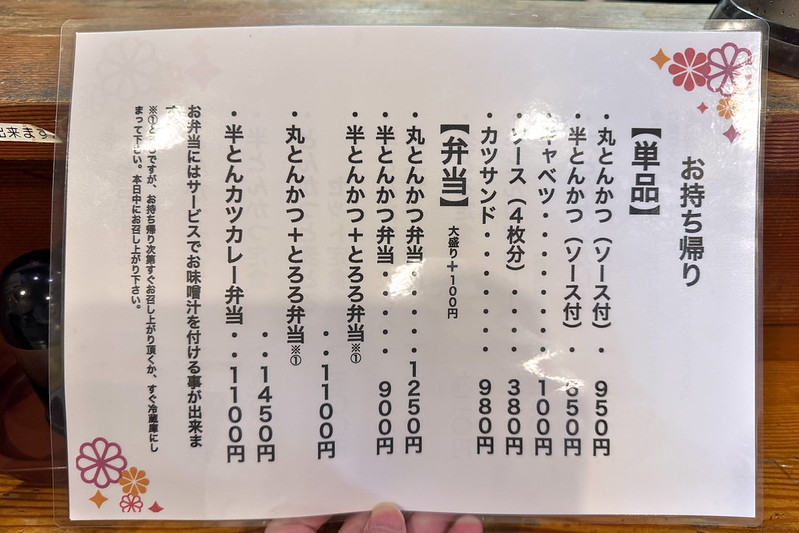 お持ち帰り
【単品】
・丸とんかつ（ソース付）・950円
・半とんかつ（ソース付）・650円
・キャベツ・・・・・・・・100円
・ソース（4枚分）・・・・380円
・カツサンド・・・・・・・980円
【弁当】 大盛り+100円
・丸とんかつ弁当・・・・・1250円
・半とんかつ弁当・・・・・900円
・半とんかつ+とろろ弁当※①
・・1100円
・丸とんかつ+とろろ弁当※①
・・1450円
・半とんカツカレー弁当・・1100円
お弁当にはサービスでお味噌汁を付ける事が出来ま
す
※①とろろですが、お持ち帰り次第すぐお召し上がり頂くか、すぐ冷蔵庫にし
まって下さい。本日中にお召し上がり下さい。